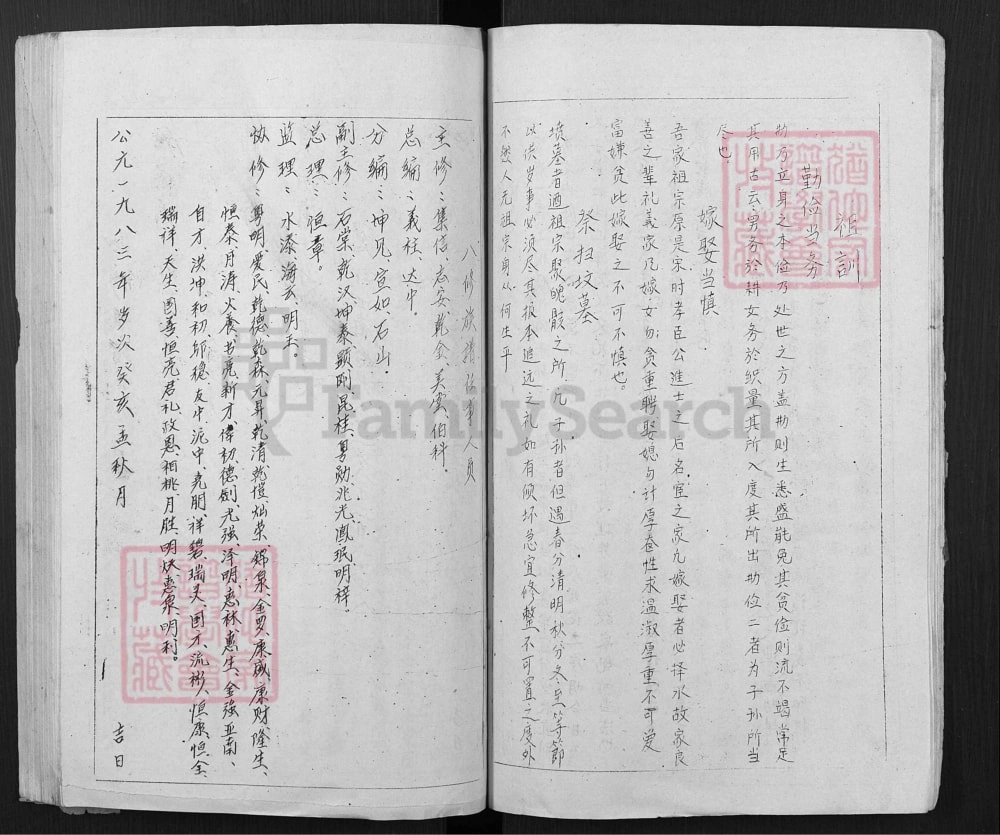 祖训
勤俭当务
勤乃立身之本俭乃处世之方盖勤则生悉盛能免其贫俭则流不竭常足
其用古云男务於耕女务於织量其所入度其所出勤俭二者为子孙所当
尽也
嫁娶当慎
吾家祖宗原是宋时孝臣公进士之后名宦之家凡嫁娶者必择水故家良
善之辈礼义家凡嫁女勿贪重聘娶媳勿计厚奁性求温淑厚重不可爱
富嫌贫此嫁娶之不可不慎也。
祭扫坟墓
坟墓者迺祖宗聚魄骸之所凡子孙者但遇春分清明秋分冬至等節
以供岁事必须尽其报本追远之礼如有倾坏急宜修整不可置之度外
不然人无祖宗身从何生乎
八修族谱
人员
主修：集信、志安、乾金、美云、伯科.
总编：義柱、达中.
分编：坤見、宣如、石山.
副主修：石棠、乾汉、坤泰、顯刚、昆桂、粤勋、兆光、鳳珉、明祥。
总理：恒章。
监理：水漆、海云、明主。
协修：粤明、爱民、乾德、乾森、元昇、乾清、乾愷、灿荣、锦泉、金罗、康盛、康财、隆生、
恒泰、月涛、火養、书亮、新才、偉初、德剑、光强、泽明、惠林、惠生、金强、亚南、
自才、洪坤、和初、邬稳、友中、沅中、克朋、祥碧、瑞天、国才、流彬、恒康、恒全、
瑞祥、天生、国善、恒亮、君礼、政恩、相桃、月胜、明炎、惠泉、明利。
公元一九八三年岁次癸亥孟秋月 吉日
FamilySearch